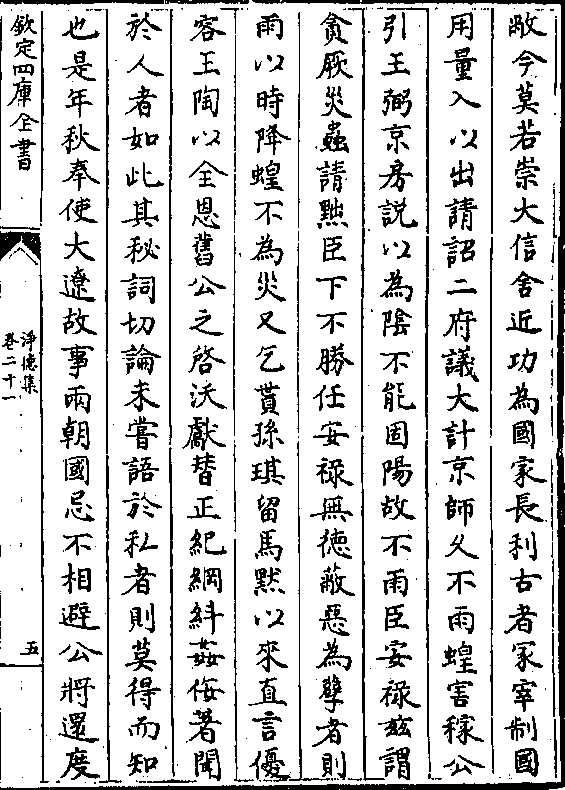 敝今莫若崇大信舍近功為國家長利古者冢宰制國
用量入以出請詔二府議大計京師乆不雨蝗害稼公
引王弼京房説以為隂不能固陽故不雨臣安禄兹謂
貪厥災蟲請黜臣下不勝任安禄無徳蔽惡為孽者則
雨以時降蝗不為災又乞貰孫琪留馬黙以來直言優
容王陶以全恩舊公之啓沃獻替正紀綱糾姦侮著聞
於人者如此其秘詞切論未嘗語於私者則莫得而知
也是年秋奉使大遼故事兩朝國忌不相避公將還度
欽定四庫全書
淨徳集
卷二十一
五